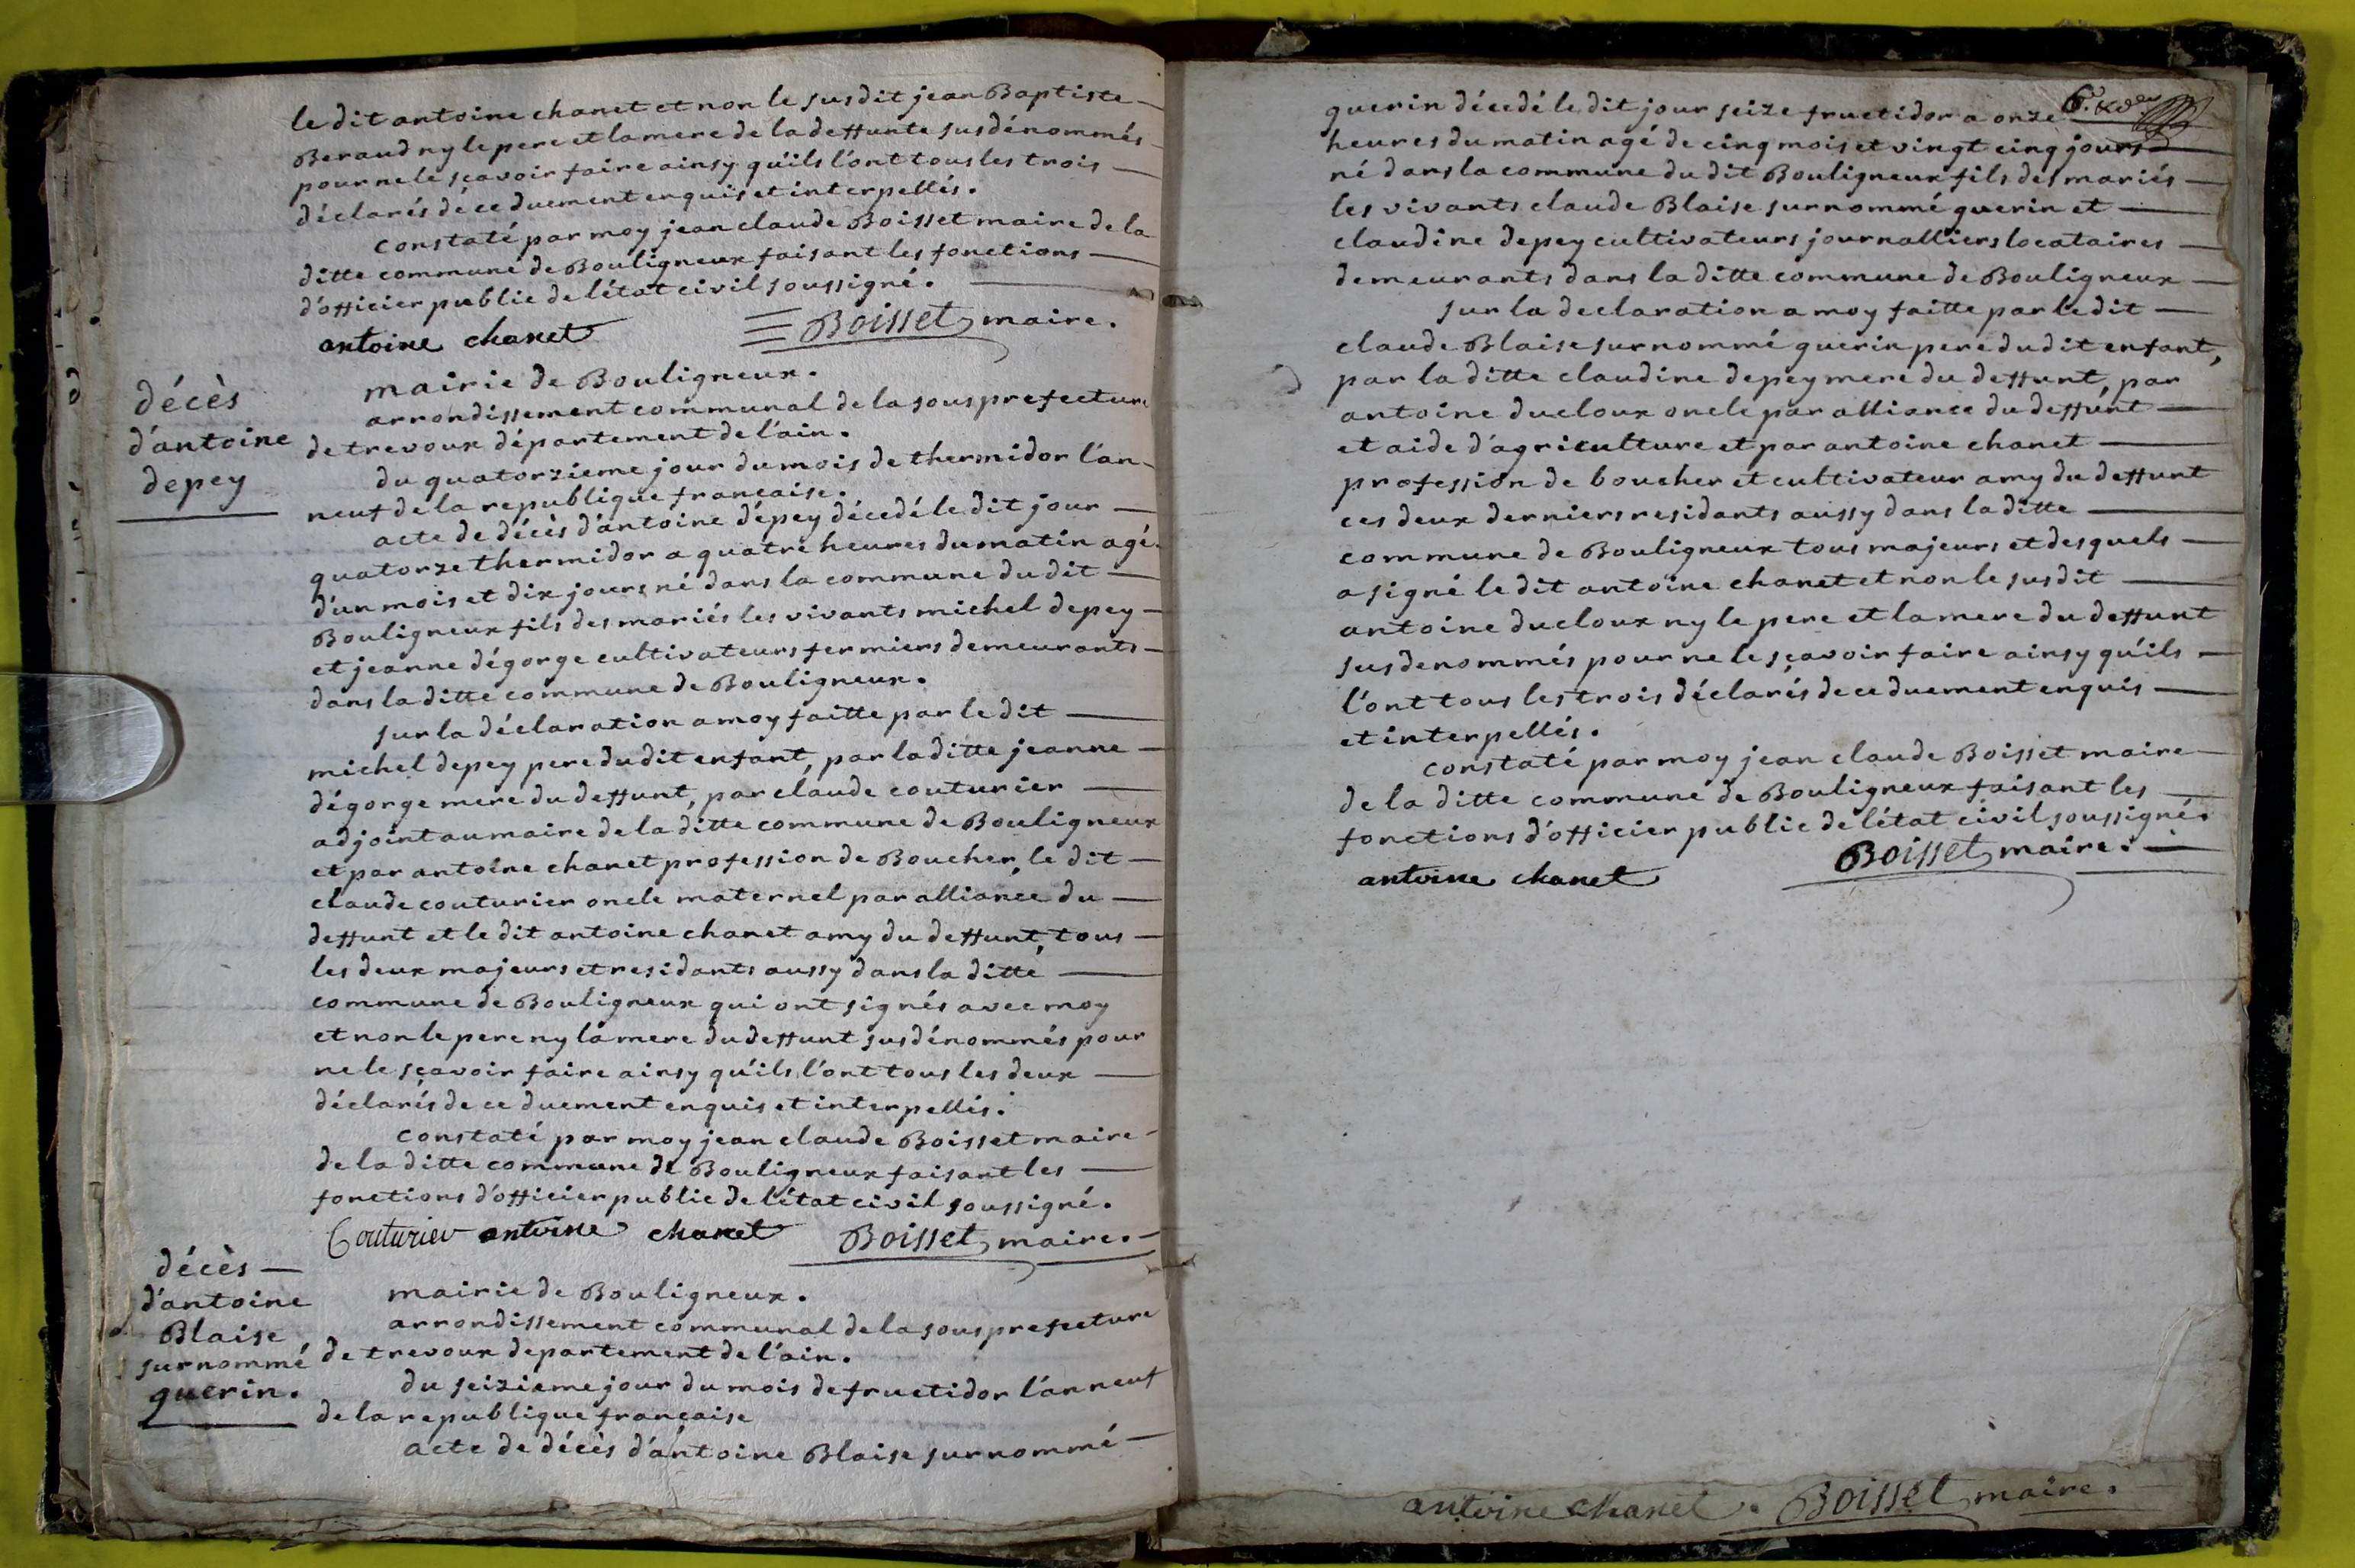 le dit antoine chanet et non le susdit jean Baptiste
Beraud ny le pere et la mere de la deffunte susdénommés
pour ne le sçavoir faire ainsy qu'ils l'ont tous les trois
déclarés de ce duement enquis et interpellés.
constaté par moy jean claude Boisset maire de la
ditte commune de Bouligneux faisant les fonctions
d'officier public de l'état civil soussigné.
antoine chanet Boisset maire.
décès
d'antoine
depey
mairie de Bouligneux.
arrondissement communal de la sous prefecture
de trevoux département de l'ain.
du quatorzieme jour du mois de thermidor l'an
neuf de la republique française.
acte de décès d'antoine dépey décedé le dit jour
quatorze thermidor a quatre heures du matin agé
d'un mois et dix jours né dans la commune du dit
Bouligneux fils des mariés les vivants michel depey
et jeanne dégorge cultivateurs fermiers demeurants
dans la ditte commune de Bouligneux.
sur la déclaration a moy faitte par le dit
michel depey pere du dit enfant, par la ditte jeanne
dégorge mere du deffunt, par claude couturier
adjoint au maire de la ditte commune de Bouligneux
et par antoine chanet profession de Boucher, le dit
claude couturier oncle maternel par alliance du
deffunt et le dit antoine chanet amy du deffunt, tous
les deux majeurs et residants aussy dans la ditte
commune de Bouligneux qui ont signés avec moy
et non le pere ny la mere du deffunt susdénommés pour
ne le sçavoir faire ainsy qu'ils l'ont tous les deux
déclarés de ce duement enquis et interpellés.
constaté par moy jean claude Boisset maire
de la ditte commune de Bouligneux faisant les
fonctions d'officier public de l'état civil soussigné.
Couturier antoine chanet Boisset maire.
décès
d'antoine
Blaise
surnommé
guerin.
mairie de Bouligneux.
arrondissement communal de la sous prefecture
de trevoux departement de l'ain.
du seizieme jour du mois de fructidor l'an neuf
de la republique française
acte de décès d'antoine Blaise surnommé
6.
guerin décedé le dit jour seize fructidor a onze
heures du matin agé de cinq mois et vingt cinq jours
né dans la commune du dit Bouligneux fils des mariés
les vivants claude Blaise surnommé guerin et
claudine depey cultivateurs journalliers locataires
demeurants dans la ditte commune de Bouligneux
sur la declaration a moy faitte par le dit
claude Blaise surnommé guerin pere du dit enfant,
par la ditte claudine depey mere du deffunt, par
antoine ducloux oncle par alliance du deffunt
et aide d'agriculture et par antoine chanet
profession de boucher et cultivateur amy du deffunt
ces deux derniers residants aussy dans la ditte
commune de Bouligneux tous majeurs et desquels
a signé le dit antoine chanet et non le susdit
antoine ducloux ny le pere et la mere du deffunt
susdenommés pour ne le sçavoir faire ainsy qu'ils
l'ont tous les trois déclarés de ce duement enquis
et interpellés.
constaté par moy jean claude Boisset maire
de la ditte commune de Bouligneux faisant les
fonctions d'officier public de l'état civil soussigné.
antoine chanet Boisset maire.
antoine chanet. Boisset maire.